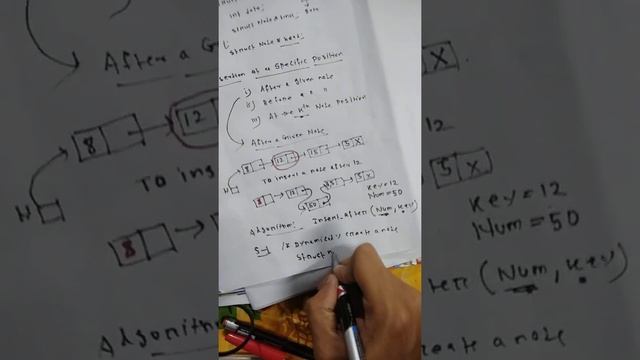 int data;
struct Node *next;
struct Node *head;
Insertion at a specific position
i) After a given node
ii) Before a " "
iii) At the Kth Node position
After a Given Node
8 12 15 5 X
H
To insert a node after 12
8 12 15 5 X
50
Key=12
Num=50
Algorithm: Insert_after (Num, Key)
S-1 /* Dynamically create a node
struct